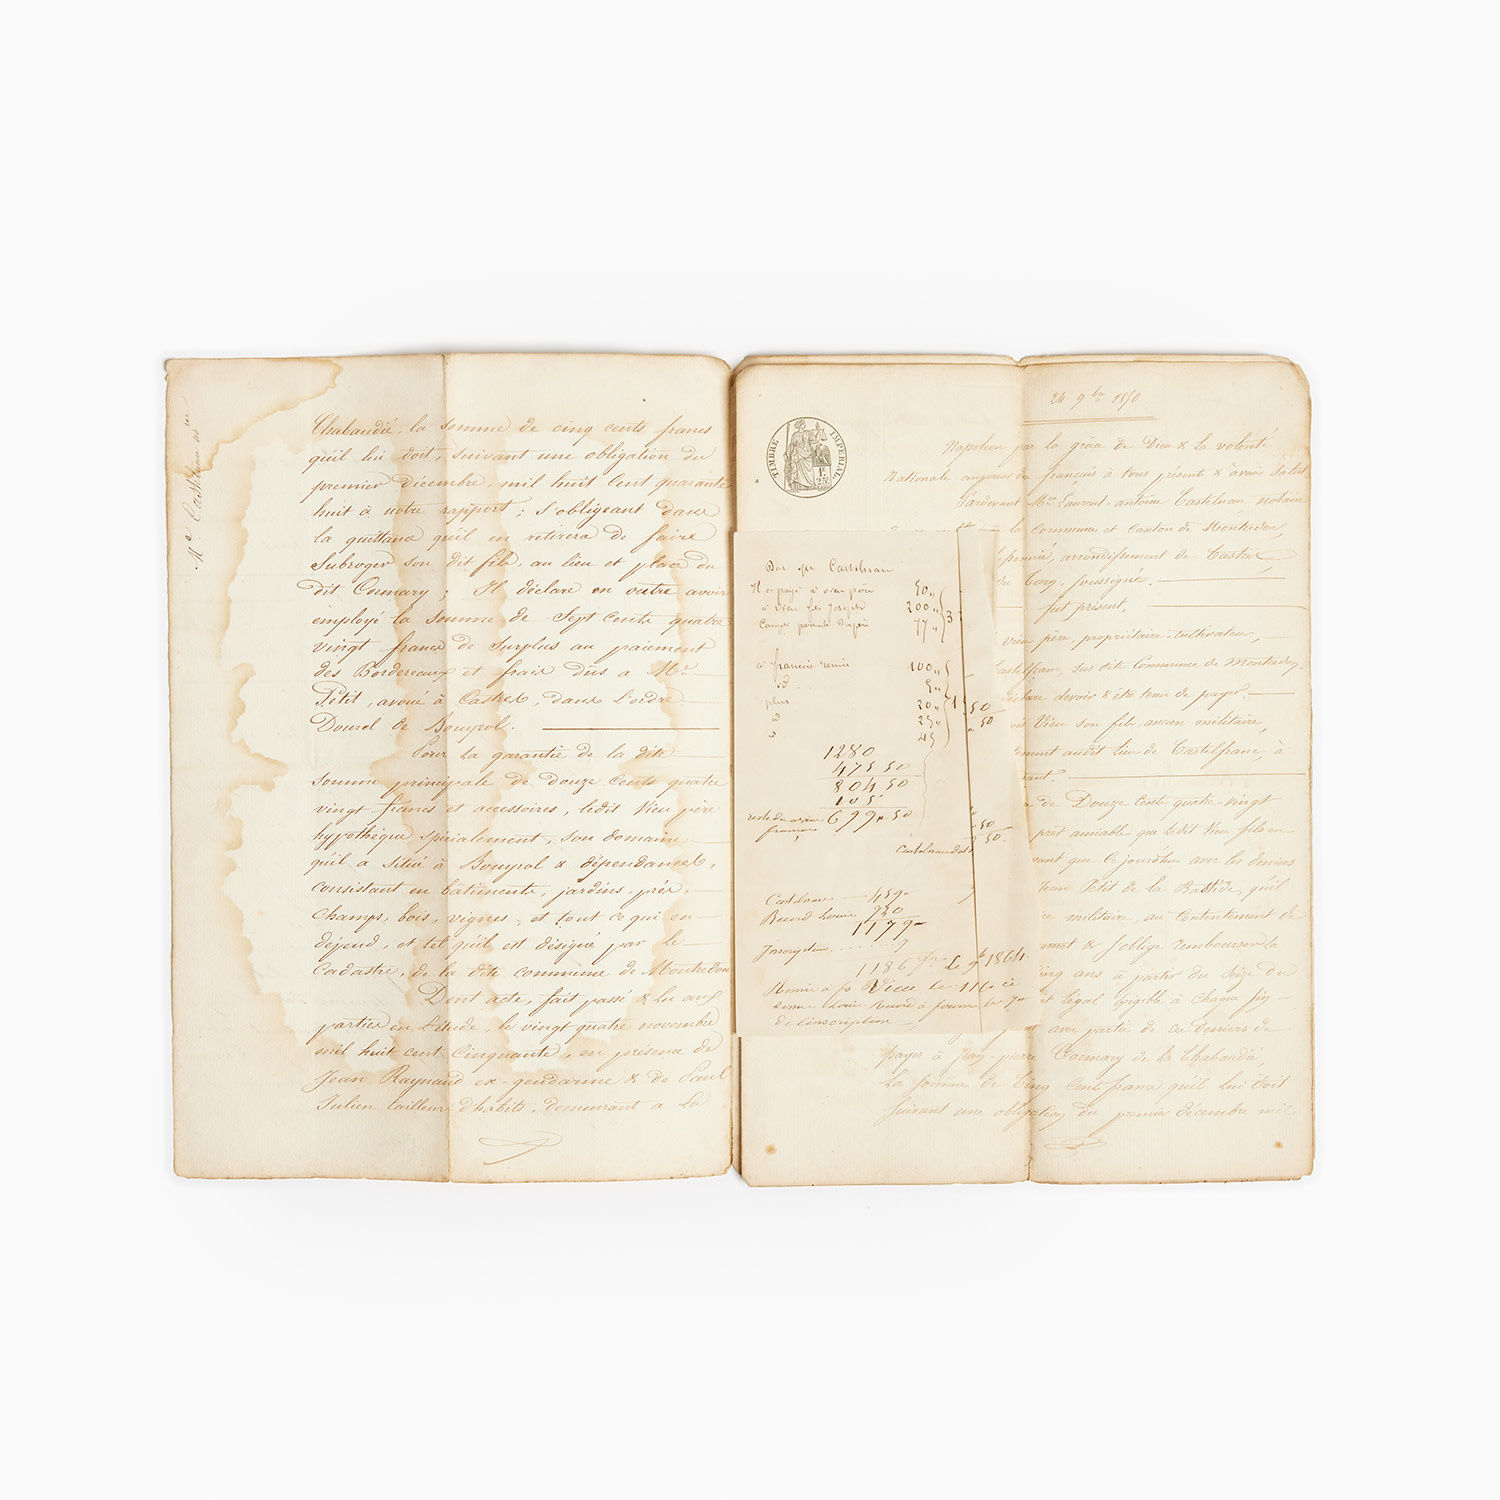 Me Castelnau not re
Chabaudié, la somme de cinq cents francs
qu'il lui doit, suivant une obligation du
premier Décembre, mil huit cent quarante
huit à notre rapport ; s'obligeant dans
la quittance qu'il en retirera de faire
Subroger son dit fils, au lieu et place du
dit Cormary ; Il déclare en outre avoir
employé la somme de Sept Cents quatre
vingt francs de Surplus au paiement
des Bordereaux et frais dûs à Me
Pétit, avoué à Castres, dans l'ordre
Dourel de Bouyrol.
Pour la garantie de la dite
somme principale de douze Cents quatre
vingt francs et accessoires, ledit Vieu père
hypothèque spécialement, son domaine
qu'il a situé à Bouyrol & dépendances,
consistant en bâtiments, jardins, prés,
champs, bois, vignes, et tout ce qui en
dépend, et tel qu'il est désigné par le
Cadastre, de la dite commune de Montredon
Dont acte, fait passé & lu aux
parties en l'étude, le vingt quatre novembre
mil huit cent Cinquante, en présence de
Jean Raynaud ex-gendarme & de Paul
Julien tailleur d'habits, demeurant à La
24 9bre 1850
TIMBRE IMPERIAL
1F.
25c.
Napoléon par la grâce de Dieu & la volonté
Nationale empereur des français à tous présents & à venir Salut
Pardevant Me Laurent-antoine Castelnau, notaire
la Commune et Canton de Montredon,
arrondissement de Castres
du Tarn, soussigné.
fut présent,
Vieu père, propriétaire-cultivateur,
Castelfranc, sus dite Commune de Montredon,
déclare devoir & être tenu de payer
Vieu son fils, ancien militaire,
audit lieu de Castelfranc, à
de Douze Cents quatre vingt
prêt amiable que ledit Vieu fils
avant que ce jourd'hui avec les deniers
Jean Petit de la Bastide, qu'il
militaire, au Contentement de
& s'oblige rembourser la
cinq ans à partir du Seize du
et légal exigible à chaque
avec partie de ces deniers de
payer à Jean-pierre Cormary de la Chabaudié,
La somme de Cinq Cents francs qu'il lui doit
suivant une obligation du premier décembre mil
Castelnau
Il a payé à vieu père 50
à Vieu fils Joseph 200
77
3
à francois remis 100
id 5
plus 20
id 25
45
1
50
50
1280
475 50
804 50
105
699 50
50
50
Castelnau doit
Castelnau 459
Record Louis 720
1179
Inscription 7
1186 le 9bre 1864
Remis à Vieu le
de l'inscription